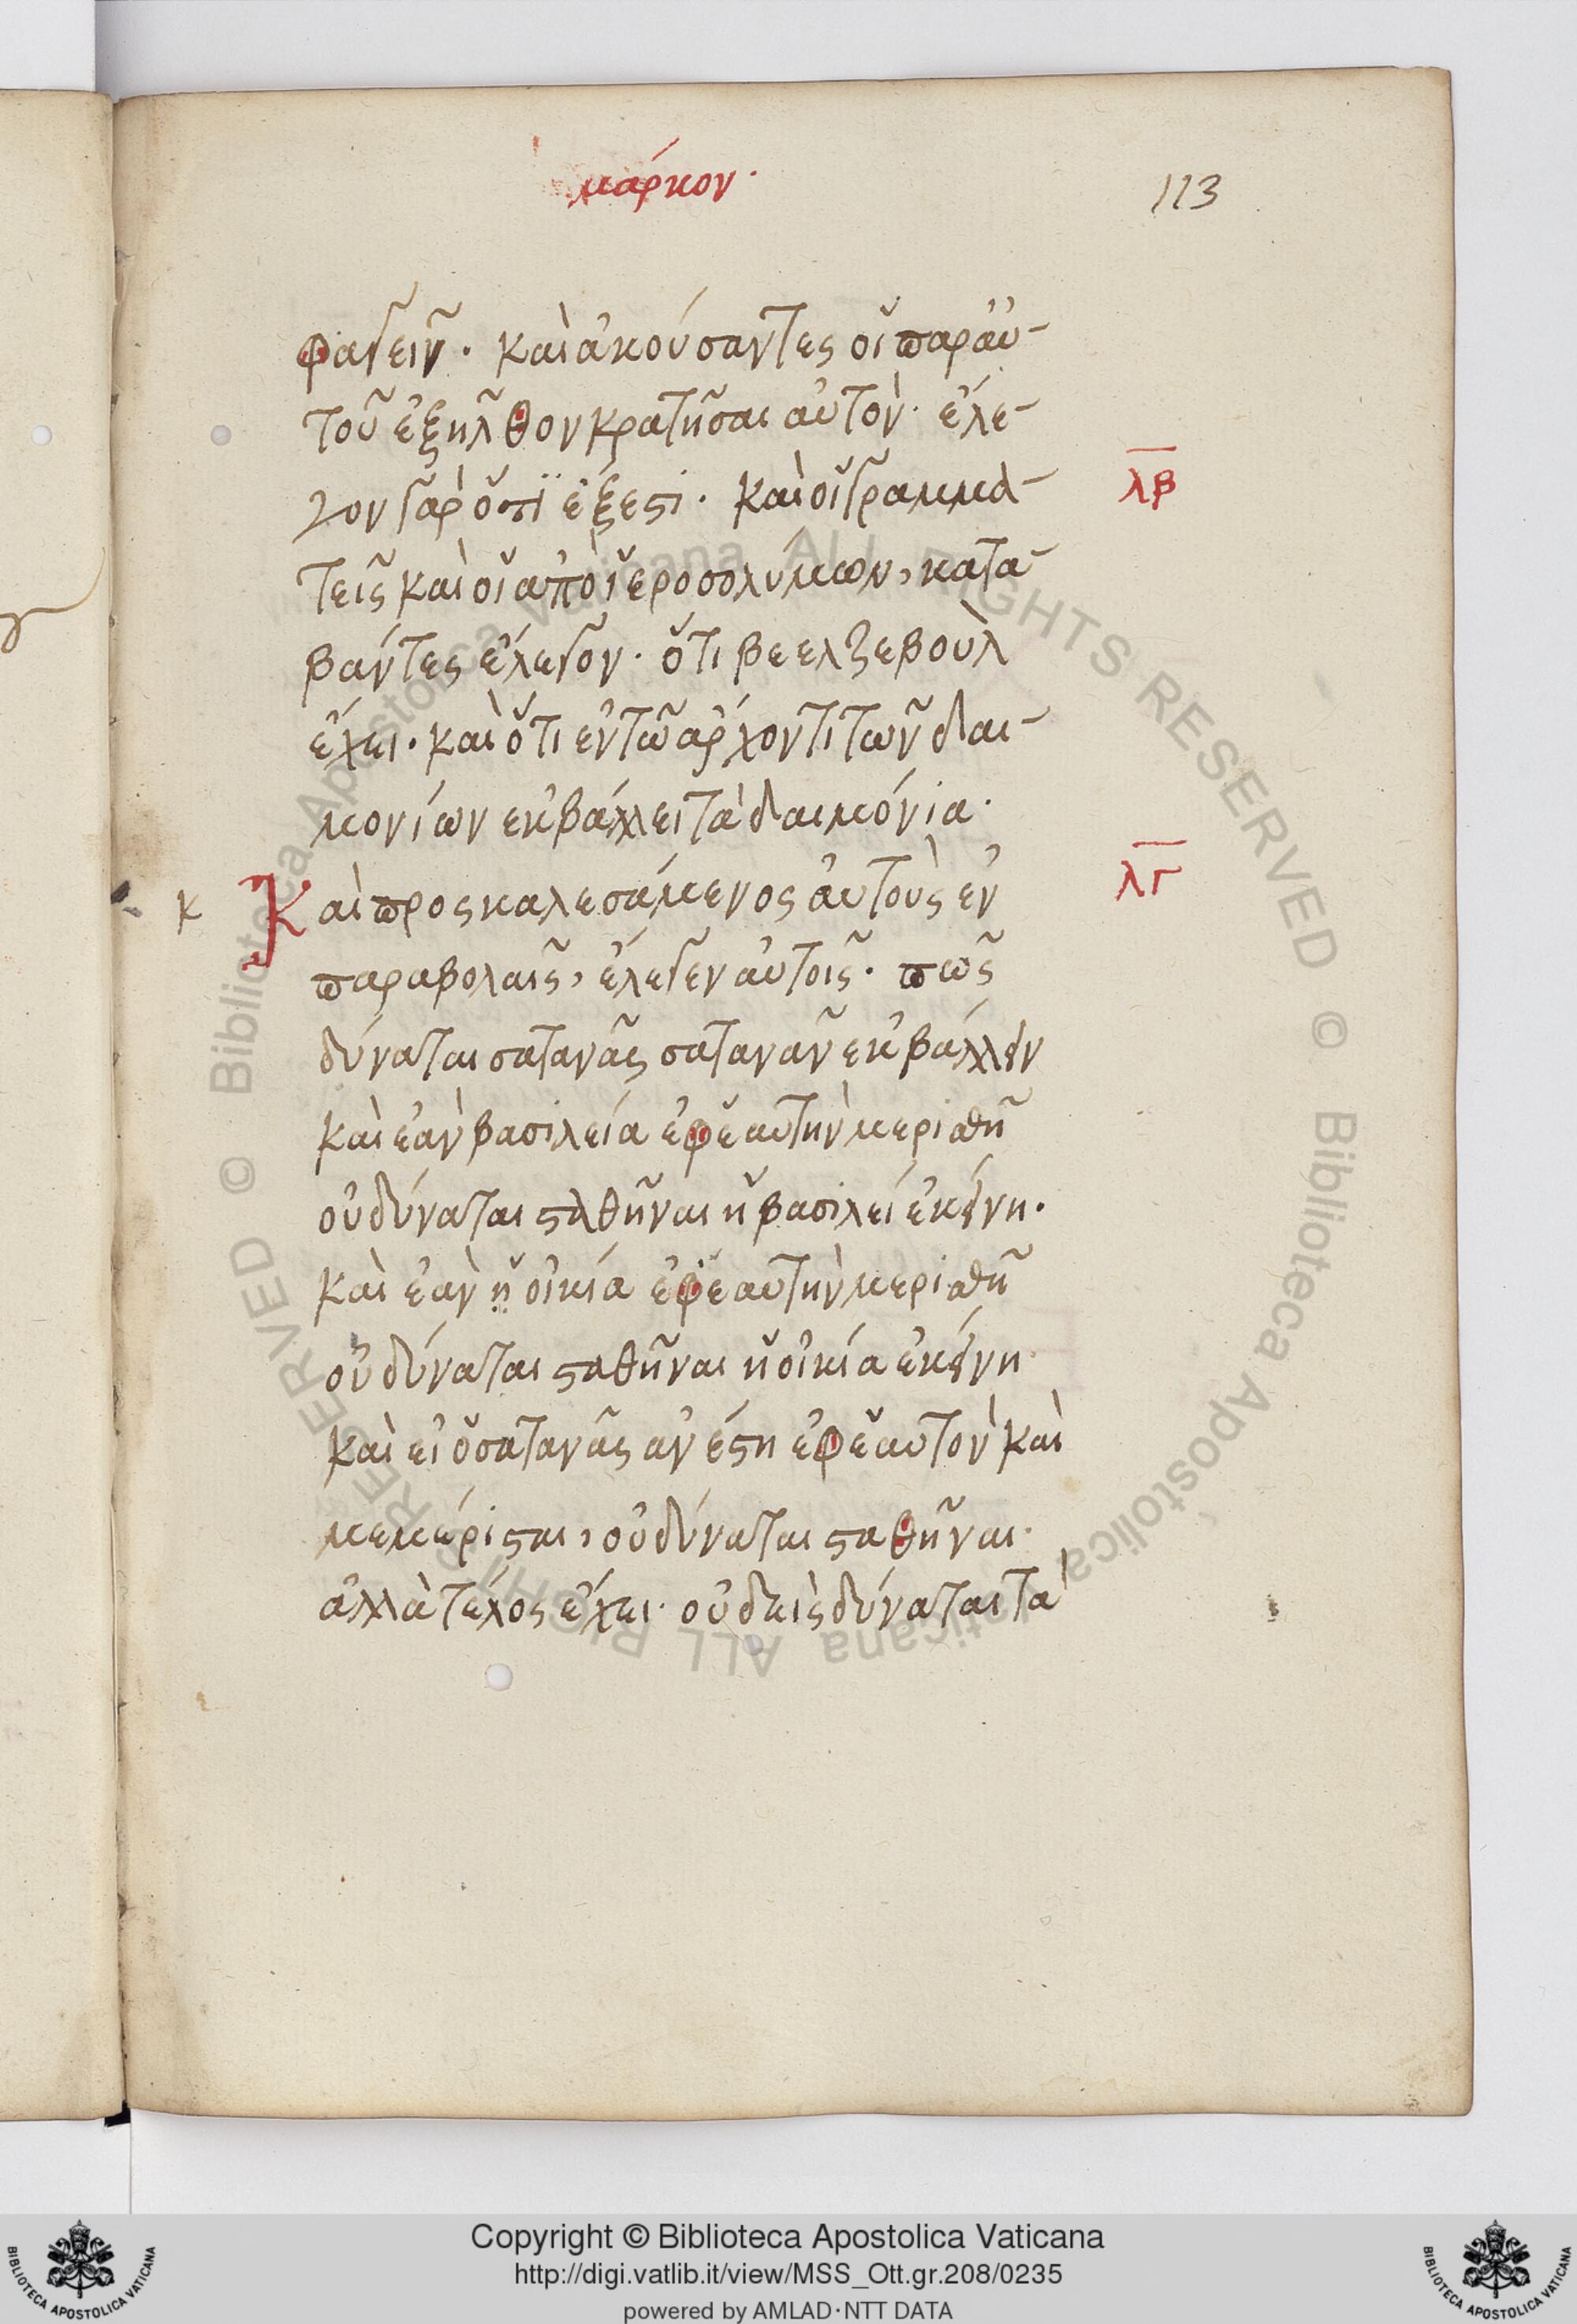 μάρκον·
113
φαγεῖν· καὶ ἀκούσαντες οἱ παρ αὐ-
τοῦ ἐξῆλθον κρατῆσαι αὐτόν· ἔλε-
γον γὰρ ὅτι ἐξέστι· καὶ οἱ γραμμα-
λβ
τεῖς καὶ οἱ ἀπὸ ἱεροσολύμων, κατα-
βάντες ἔλεγον· ὅτι βεελζεβοὺλ
ἔχει· καὶ ὅτι ἐν τῶ ἄρχοντι τῶν δαι-
μονίων ἐκβάλλει τὰ δαιμόνια·
λγ
κ
Καὶ προςκαλεσάμενος αὐτοὺς ἐν
παραβολαῖς, ἔλεγεν αὐτοῖς· πῶς
δύναται σατανᾶς σατανᾶν ἐκβάλλειν
καὶ ἐὰν βασιλεία ἐφ ἑαυτὴν μερισθῆ
οὐ δύναται σταθῆναι ἡ βασιλεί ἐκείνη·
καὶ ἐὰν ἡ οἰκία ἐφ ἑαυτὴν μερισθῆ
οὐ δύναται σταθῆναι ἡ οἰκία ἐκείνη
καὶ εἰ ὁ σατανᾶς ἀνέστη ἐφ ἑαυτὸν καὶ
μεμέρισται, οὐ δύναται σταθῆναι·
ἀλλὰ τέλος ἔχει· οὐδεὶς δύναται τὰ
© Biblioteca Apostolica Vaticana ALL RIGHTS RESERVED © Biblioteca Apostolica Vaticana ALL RIGHTS RESERVED
Copyright © Biblioteca Apostolica Vaticana
http://digi.vatlib.it/view/MSS_Ott.gr.208/0235
powered by AMLAD·NTT DATA
BIBLIOTECA APOSTOLICA VATICANA
BIBLIOTECA APOSTOLICA VATICANA